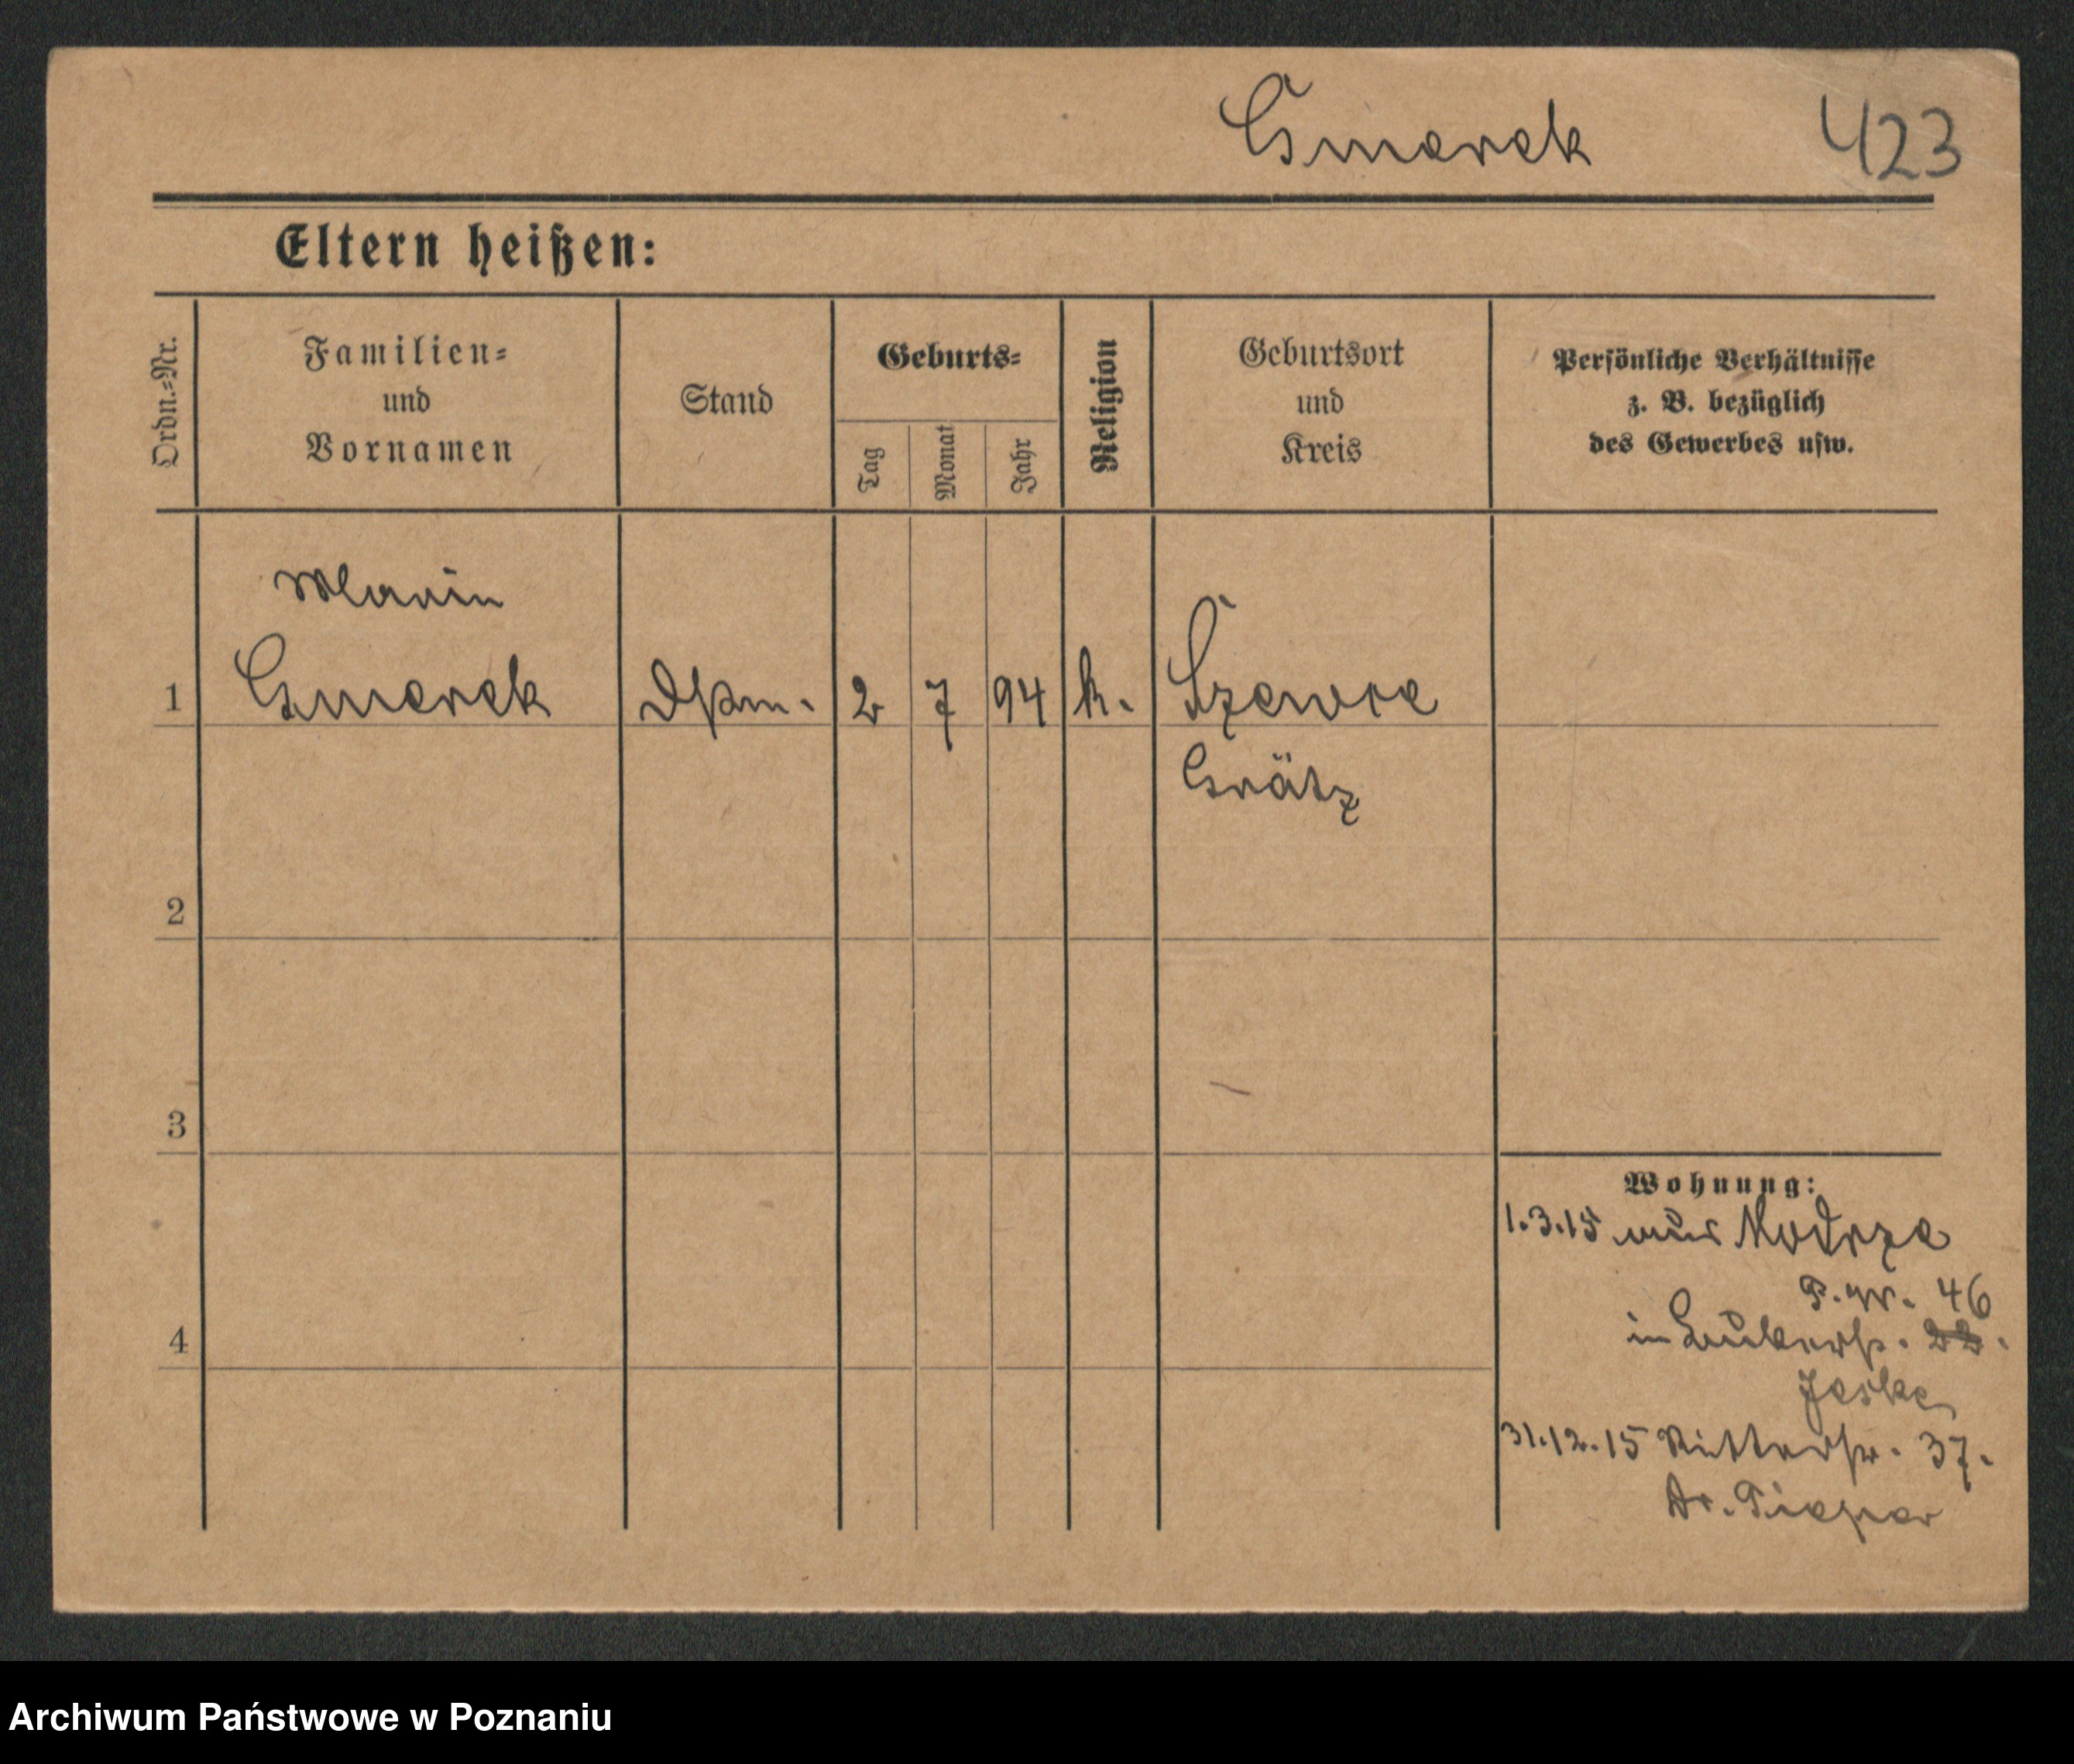 Gmerek 423
Eltern heißen:
Ordn.-Nr.
Familien-
und
Vornamen
Stand
Geburts-
Tag
Monat
Jahr
Religion
Geburtsort
und
Kreis
Persönliche Verhältnisse
z. B. bezüglich
des Gewerbes usw.
Marie
1 Gmerek Dstm. 2 7 94 k. Szewce
Grätz
2
3
4
Wohnung:
1.3.15 aus Modrze
P. 46
in 22.
Jeske
31.12.15 Ritterstr. 37.
Dr.
Archiwum Państwowe w Poznaniu